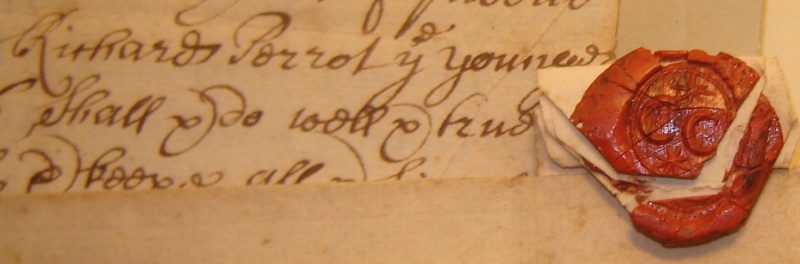 Richard Perrot yͤ younger
Shall & do well & true
& keep all
CC